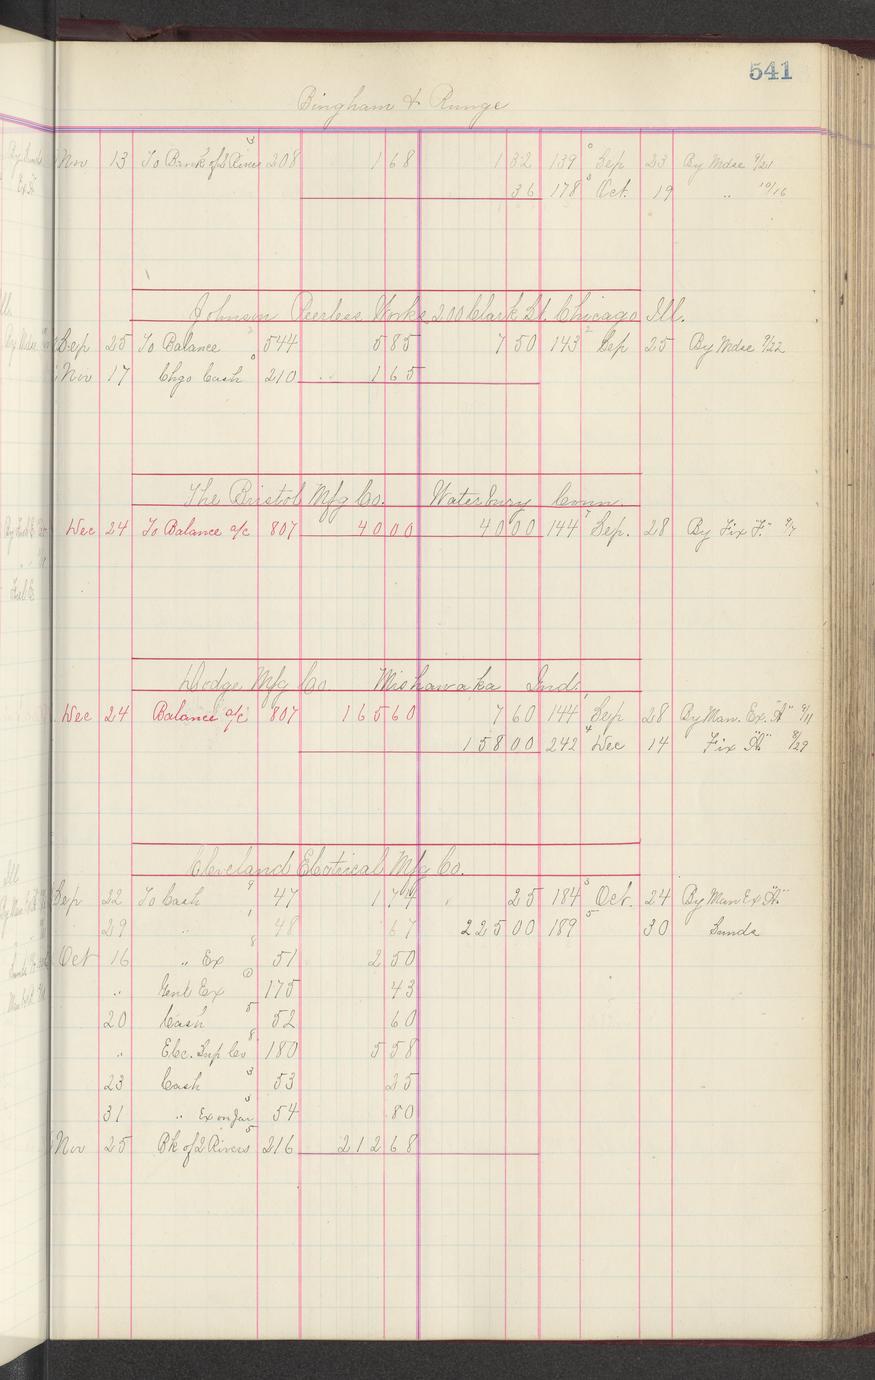 541
Bingham & Runge
Nov 13 To Bank of 2 Rivers 3 208 1 68 1 32 139 Sep 23 By Mdse 9/21
36 178 Oct. 19 " 10/16
Johnson Peerless Works 200 Clark St. Chicago Ill.
Sep 25 To Balance 2 544 5 85 7 50 143 2 Sep 25 By Mdse 9/22
Nov 17 Chgo Cash 0 210 1 65
The Bristol Mfg Co. Waterbury Conn.
Dec 24 To Balance a/c 807 40 00 40 00 144 7 Sep. 28 By Fix "F" 9/7
Dodge Mfg Co. Mishawaka Ind.
Dec 24 Balance a/c 807 165 60 7 60 144 1 Sep 28 By Man. Ex. "A" 9/11
158 00 242 4 Dec 14 Fix "A" 8/29
Cleveland Electrical Mfg Co.
Sep 22 To Cash 9 47 1 74 25 184 3 Oct. 24 By Man Ex "A"
29 " 1 48 67 225 00 189 5 30 Sunds
Oct 16 " Ex 8 51 2 50
" Genl Ex 175 43
20 Cash 5 52 60
" Elec. Sup Co 8 180 5 58
23 Cash 3 53 25
31 " Ex on Jar 3 54 80
Nov 25 Bk of 2 Rivers 5 216 212 68